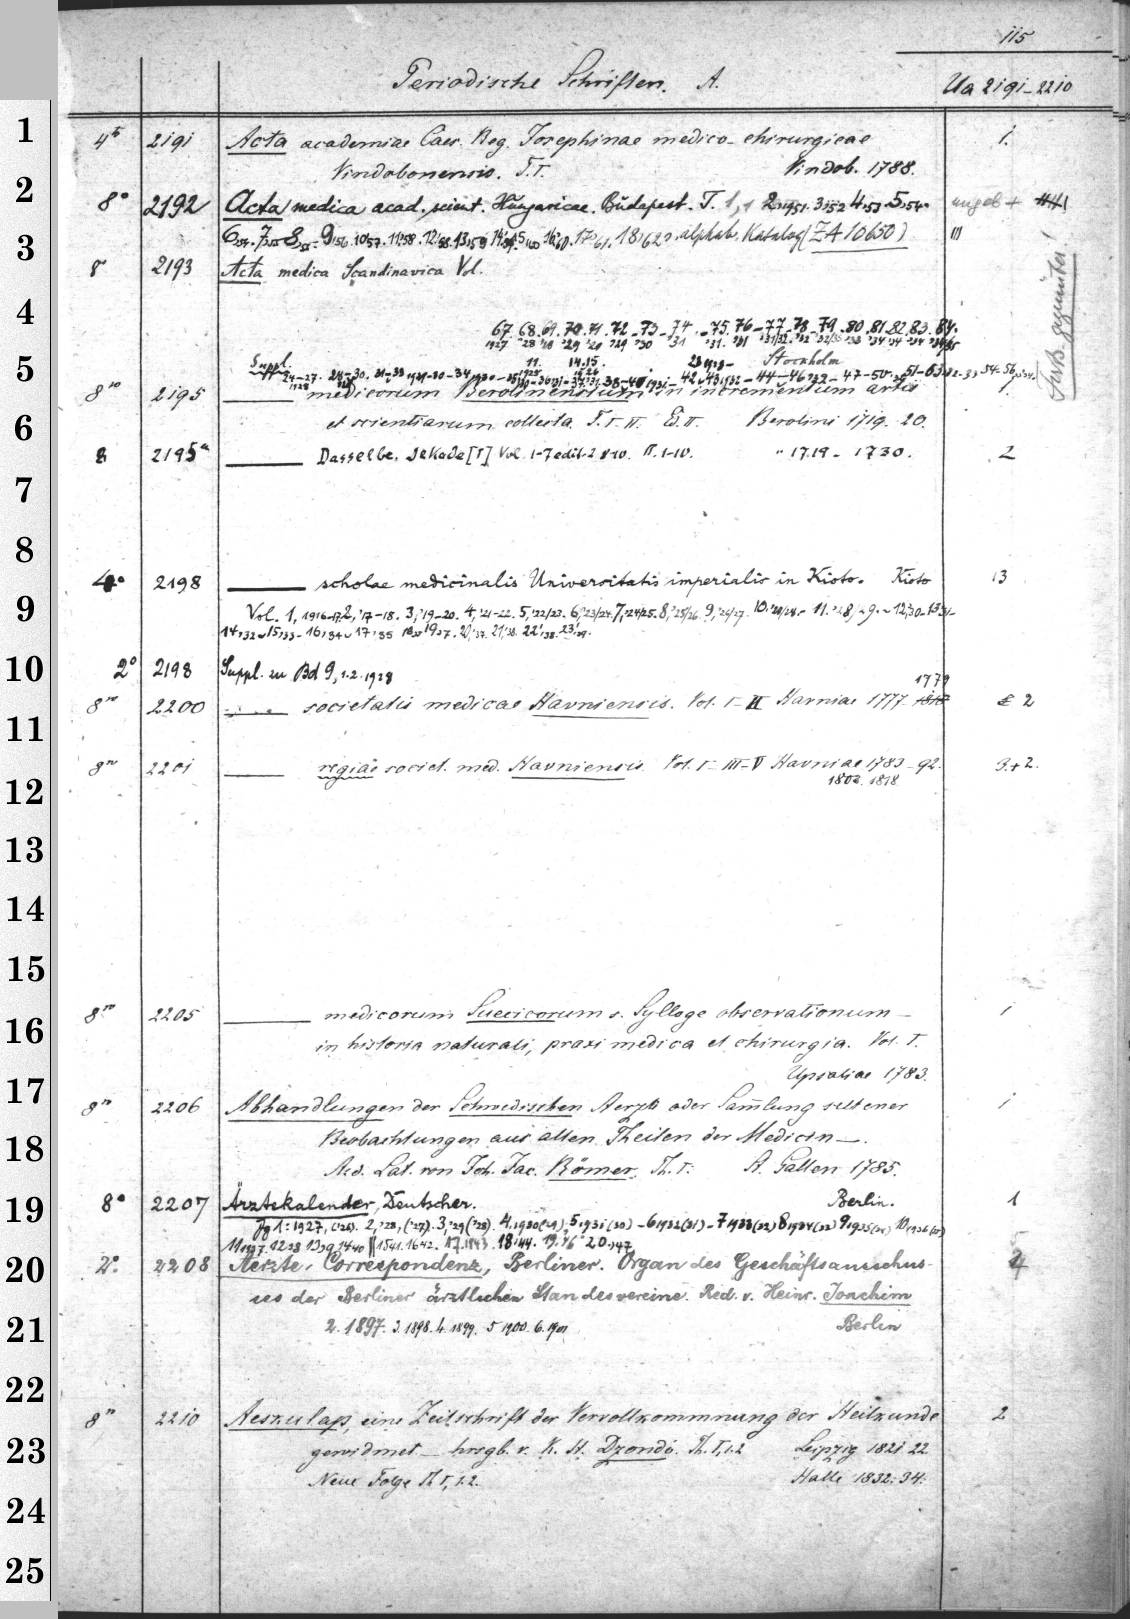 115
Periodische Schriften. A.
Ua 2191-2210
1
4° 2191 Acta academiae Caes. Reg. Josephinae medico-chirurgicae 1.
Vindobonensis. T. I. Vindob. 1788.
2
8° 2192 Acta medica acad. scient. Hungaricae. Budapest. T. 1, 2,1951. 3,52 4,53. 5,54.
3
9,56. 10,57. 11,58. 12,58. 13,59 17,61. 18,62 alphab. Katalog (ZA 10650)
8° 2193 Acta medica Scandinavica Vol.
4
67. 68. 69. 70. 71. 72 - 73 - 74 - 75. 76 - 77. 78 - 79. 80. 81. 82. 83. 84.
1927 '28 '28 '29 '29 '29 '30 '31 '31. '31
5
Suppl. Stockholm
8vo 2195 ——— medicorum Berolinensium in incrementum artis 1.
6
et scientiarum collecta. T. I-II. Ed. II. Berolini 1719-20.
8 2195a ——— Dasselbe. Dekade [I] Vol. 1-7 edit. 2 8-10. II. 1-10. " 1719-1730. 2
7
8
4° 2198 ——— scholae medicinalis Universitatis imperialis in Kioto. Kioto 13
9
Vol. 1, 1916-17. 2, '17-18. 3, '19-20. 4, '21-22. 5, '22/23. 6, '23/24. 7, '24/25. 8, '25/26. 9, '26/27. 10.
14,32 15,33- 16,34 17,35 19,37. 20,'37. 21,'38. 22,'38. 23,'39.
10
2° 2198 Suppl. zu Bd 9, 1.2. 1928
1779
8vo 2200 ——— societatis medicae Havniensis. Vol. I-II Havniae 1777. 2
11
8vo 2201 ——— regiae societ. med. Havniensis Vol. I-III-V Havniae 1783-92. 3.+2.
1803. 1818
12
13
14
15
8vo 2205 ——— medicorum Suecicorum s. Sylloge observationum — 1
16
in historia naturali, praxi medica et chirurgia. Vol. I.
Upsaliae 1783.
17
8vo 2206 Abhandlungen der Schwedischen Aerzte oder Sam̅lung seltener 1
18
Beobachtungen aus allen Theilen der Medicin —.
A. d. Lat. von Joh. Jac. Römer. Th. I. St. Gallen 1785.
19
8° 2207 Ärztekalender, Deutscher. Berlin. 1
Jg 1: 1927, ('26). 2, '28, ('27). 3, '29 ('28). 4. 1930 ('29), 5, 1931 (30) - 6 1932 (31) - 7 1933 (32) 8 1934 (33) 9 1935 (34) 10
11 1937. 12 38 13,9 14 40 || 15 41. 16 42. 17. 1943. 18,44. 19. 46 20. 47
20
2°. 2208 Aerzte-Correspondenz, Berliner. Organ des Geschäftsausschus-
ses der Berliner ärztlichen Standesvereine. Red. v. Heinr. Joachim
21
2. 1897. 3. 1898. 4. 1899. 5 1900. 6. 1901 Berlin
22
8vo 2210 Aeskulap, eine Zeitschrift der Vervollkommnung der Heilkunde 2
23
gewidmet — hrsgb. v. K. H. Dzondi. Th. I, 1.2 Leipzig 1821-22
Neue Folge Th I, 1.2. Halle 1832-34.
24
25